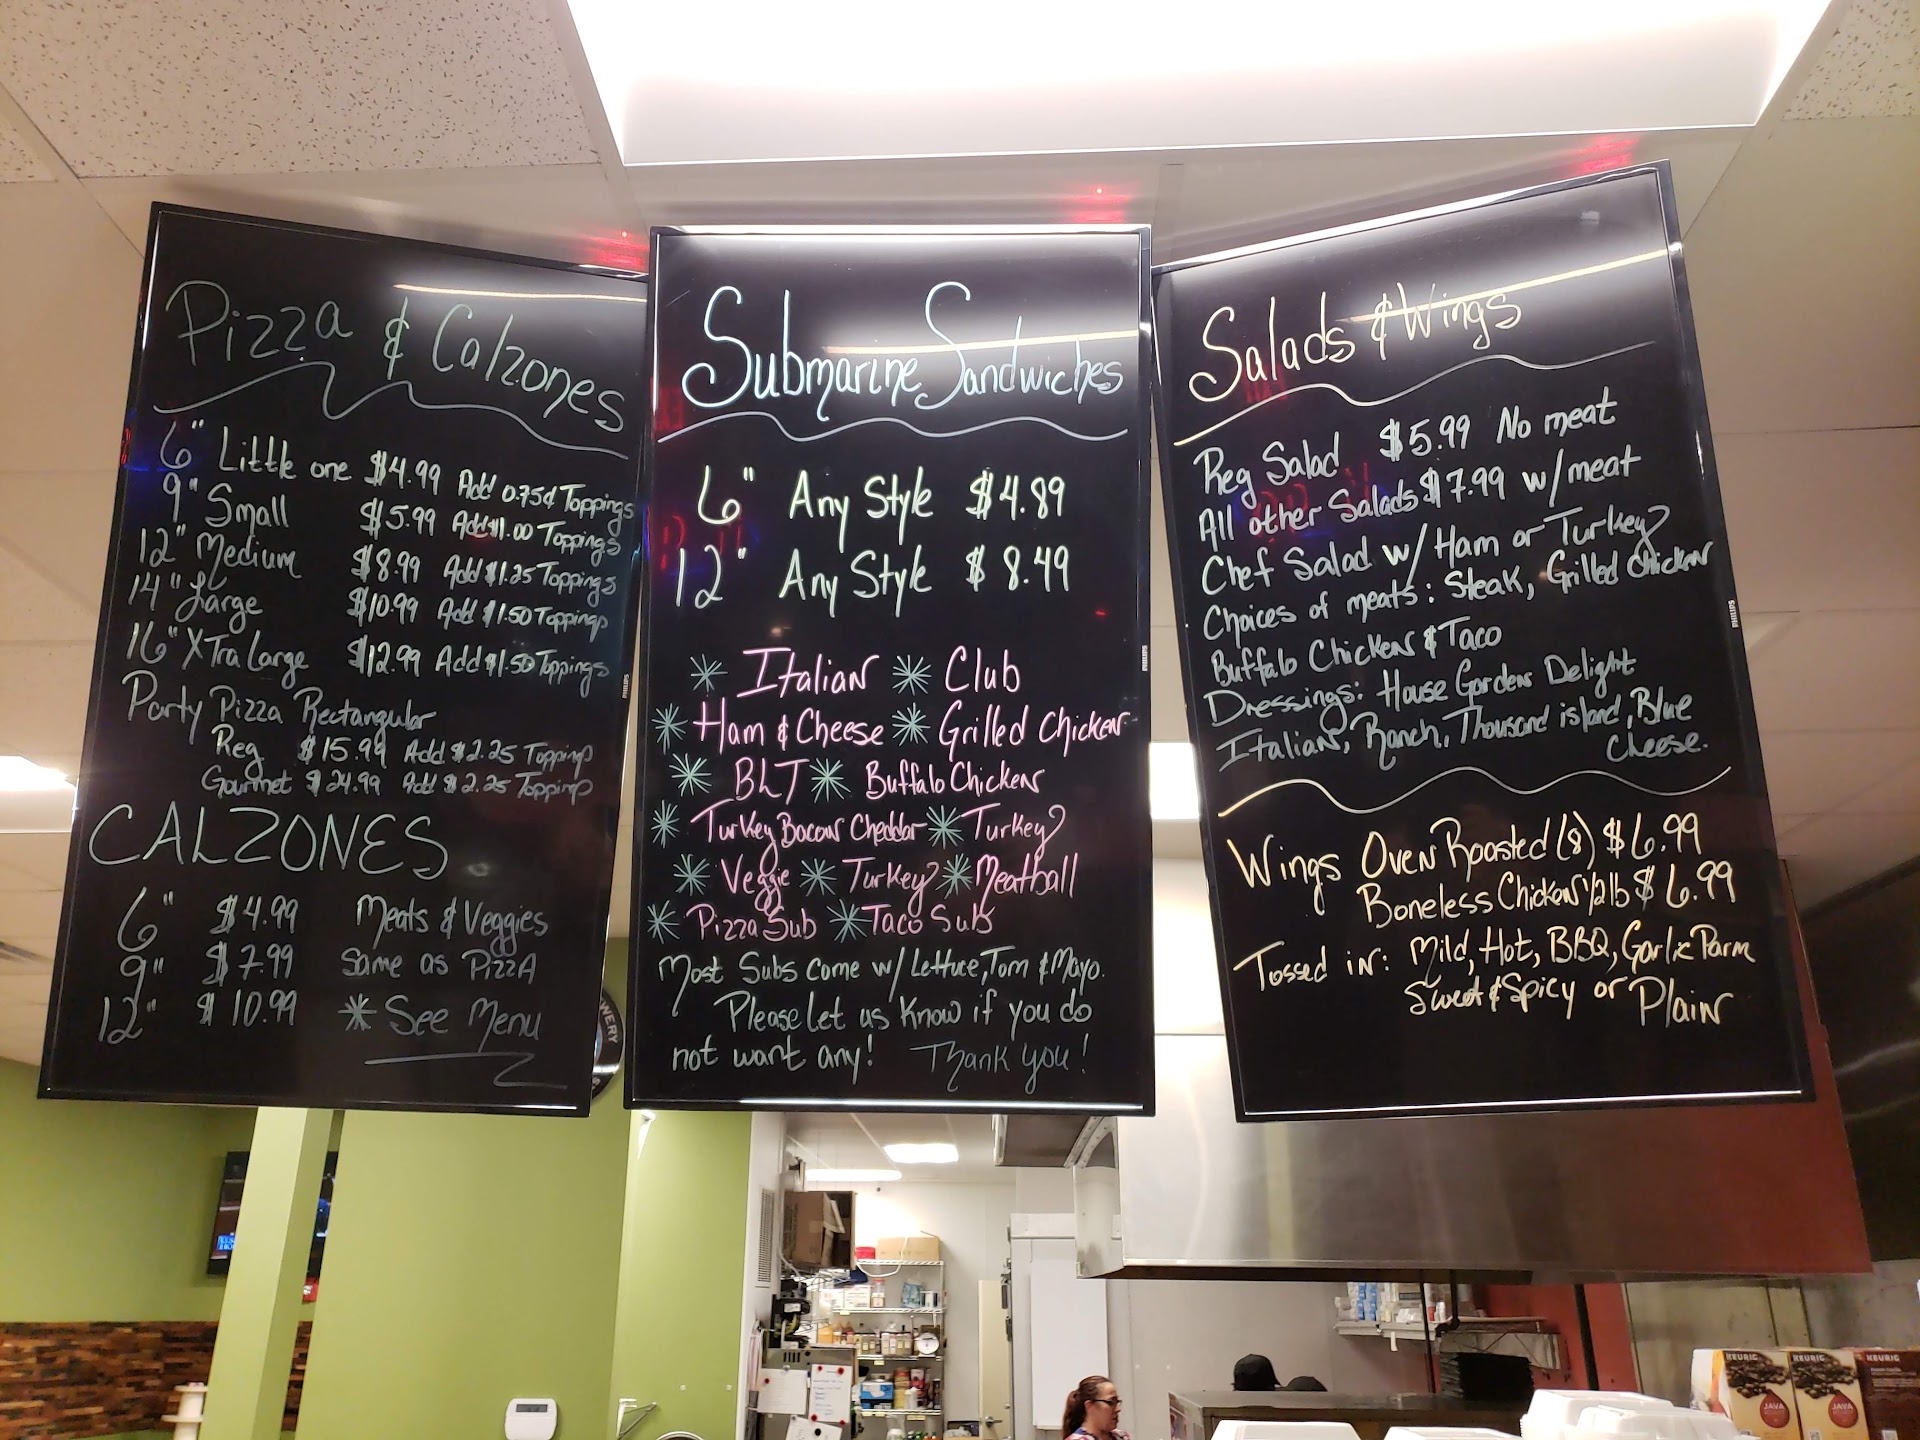 Pizza & Calzones
6" Little one $4.99 Add 0.75¢ Toppings
9" Small $5.99 Add $1.00 Toppings
12" Medium $8.99 Add $1.25 Toppings
14" Large $10.99 Add $1.50 Toppings
16" XTra Large $12.99 Add $1.50 Toppings
Party Pizza Rectangular
Reg $15.99 Add $2.25 Topping
Gourmet $24.99 Add $2.25 Topping
CALZONES
6" $4.99 Meats & Veggies
9" $7.99 Same as PizzA
12" $10.99 * See Menu
PHILIPS
Submarine Sandwiches
6" Any Style $4.89
12" Any Style $8.49
* Italian * Club
* Ham & Cheese * Grilled Chicken
* BLT * Buffalo Chicken
* Turkey Bacon Cheddar * Turkey
* Veggie * Turkey * Meatball
* Pizza Sub * Taco Sub
Most Subs come w/ Lettuce, Tom & Mayo.
Please Let us Know if you do
not want any! Thank you!
PHILIPS
Salads & Wings
Reg Salad $5.99 No meat
All other Salads $7.99 w/meat
Chef Salad w/ Ham or Turkey
Choices of meats: Steak, Grilled Chicken
Buffalo Chicken & Taco
Dressings: House Garden Delight
Italian, Ranch, Thousand island, Blue
Cheese.
Wings Oven Roasted (8) $6.99
Boneless Chicken 1/2 lb $6.99
Tossed in: Mild, Hot, BBQ, Garlic Parm
Sweet & Spicy or Plain
PHILIPS
KEURIG
JAVA
KEURIG
JAVA
KEURIG